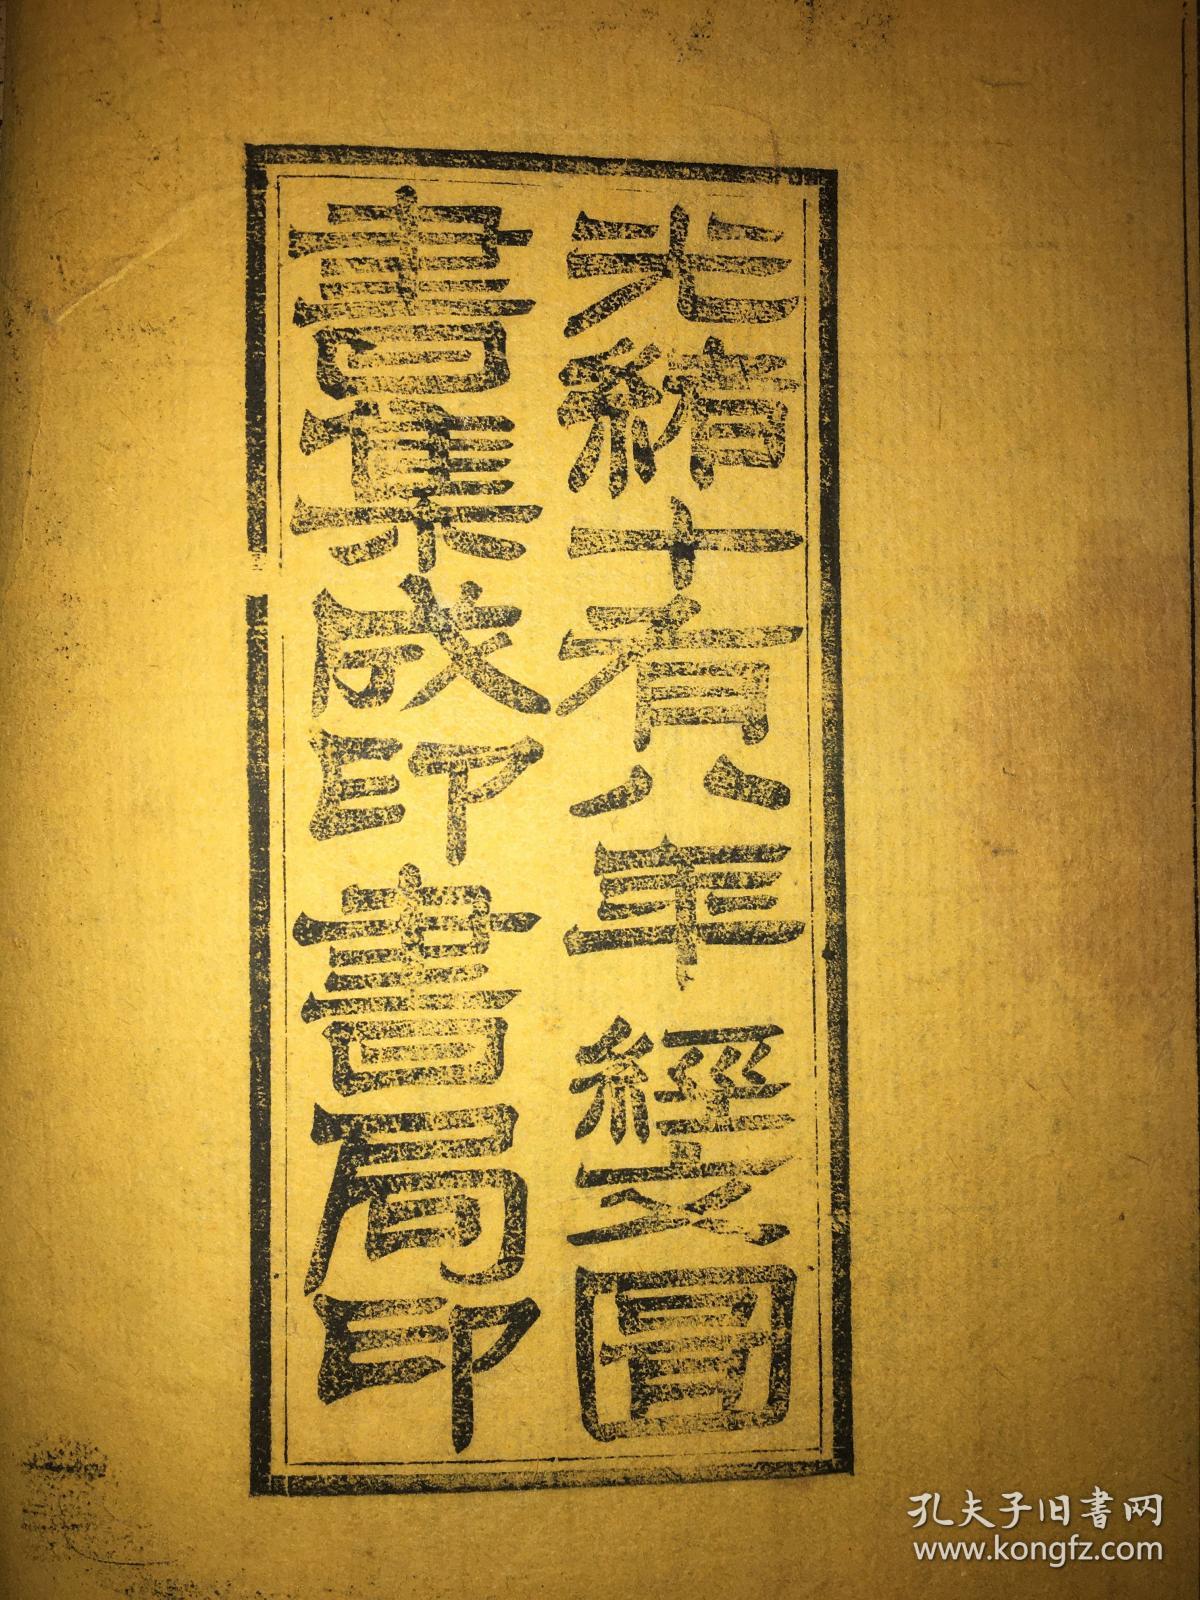 光緒十有八年經文圖
書集成印書局印
孔夫子旧書网
www.kongfz.com